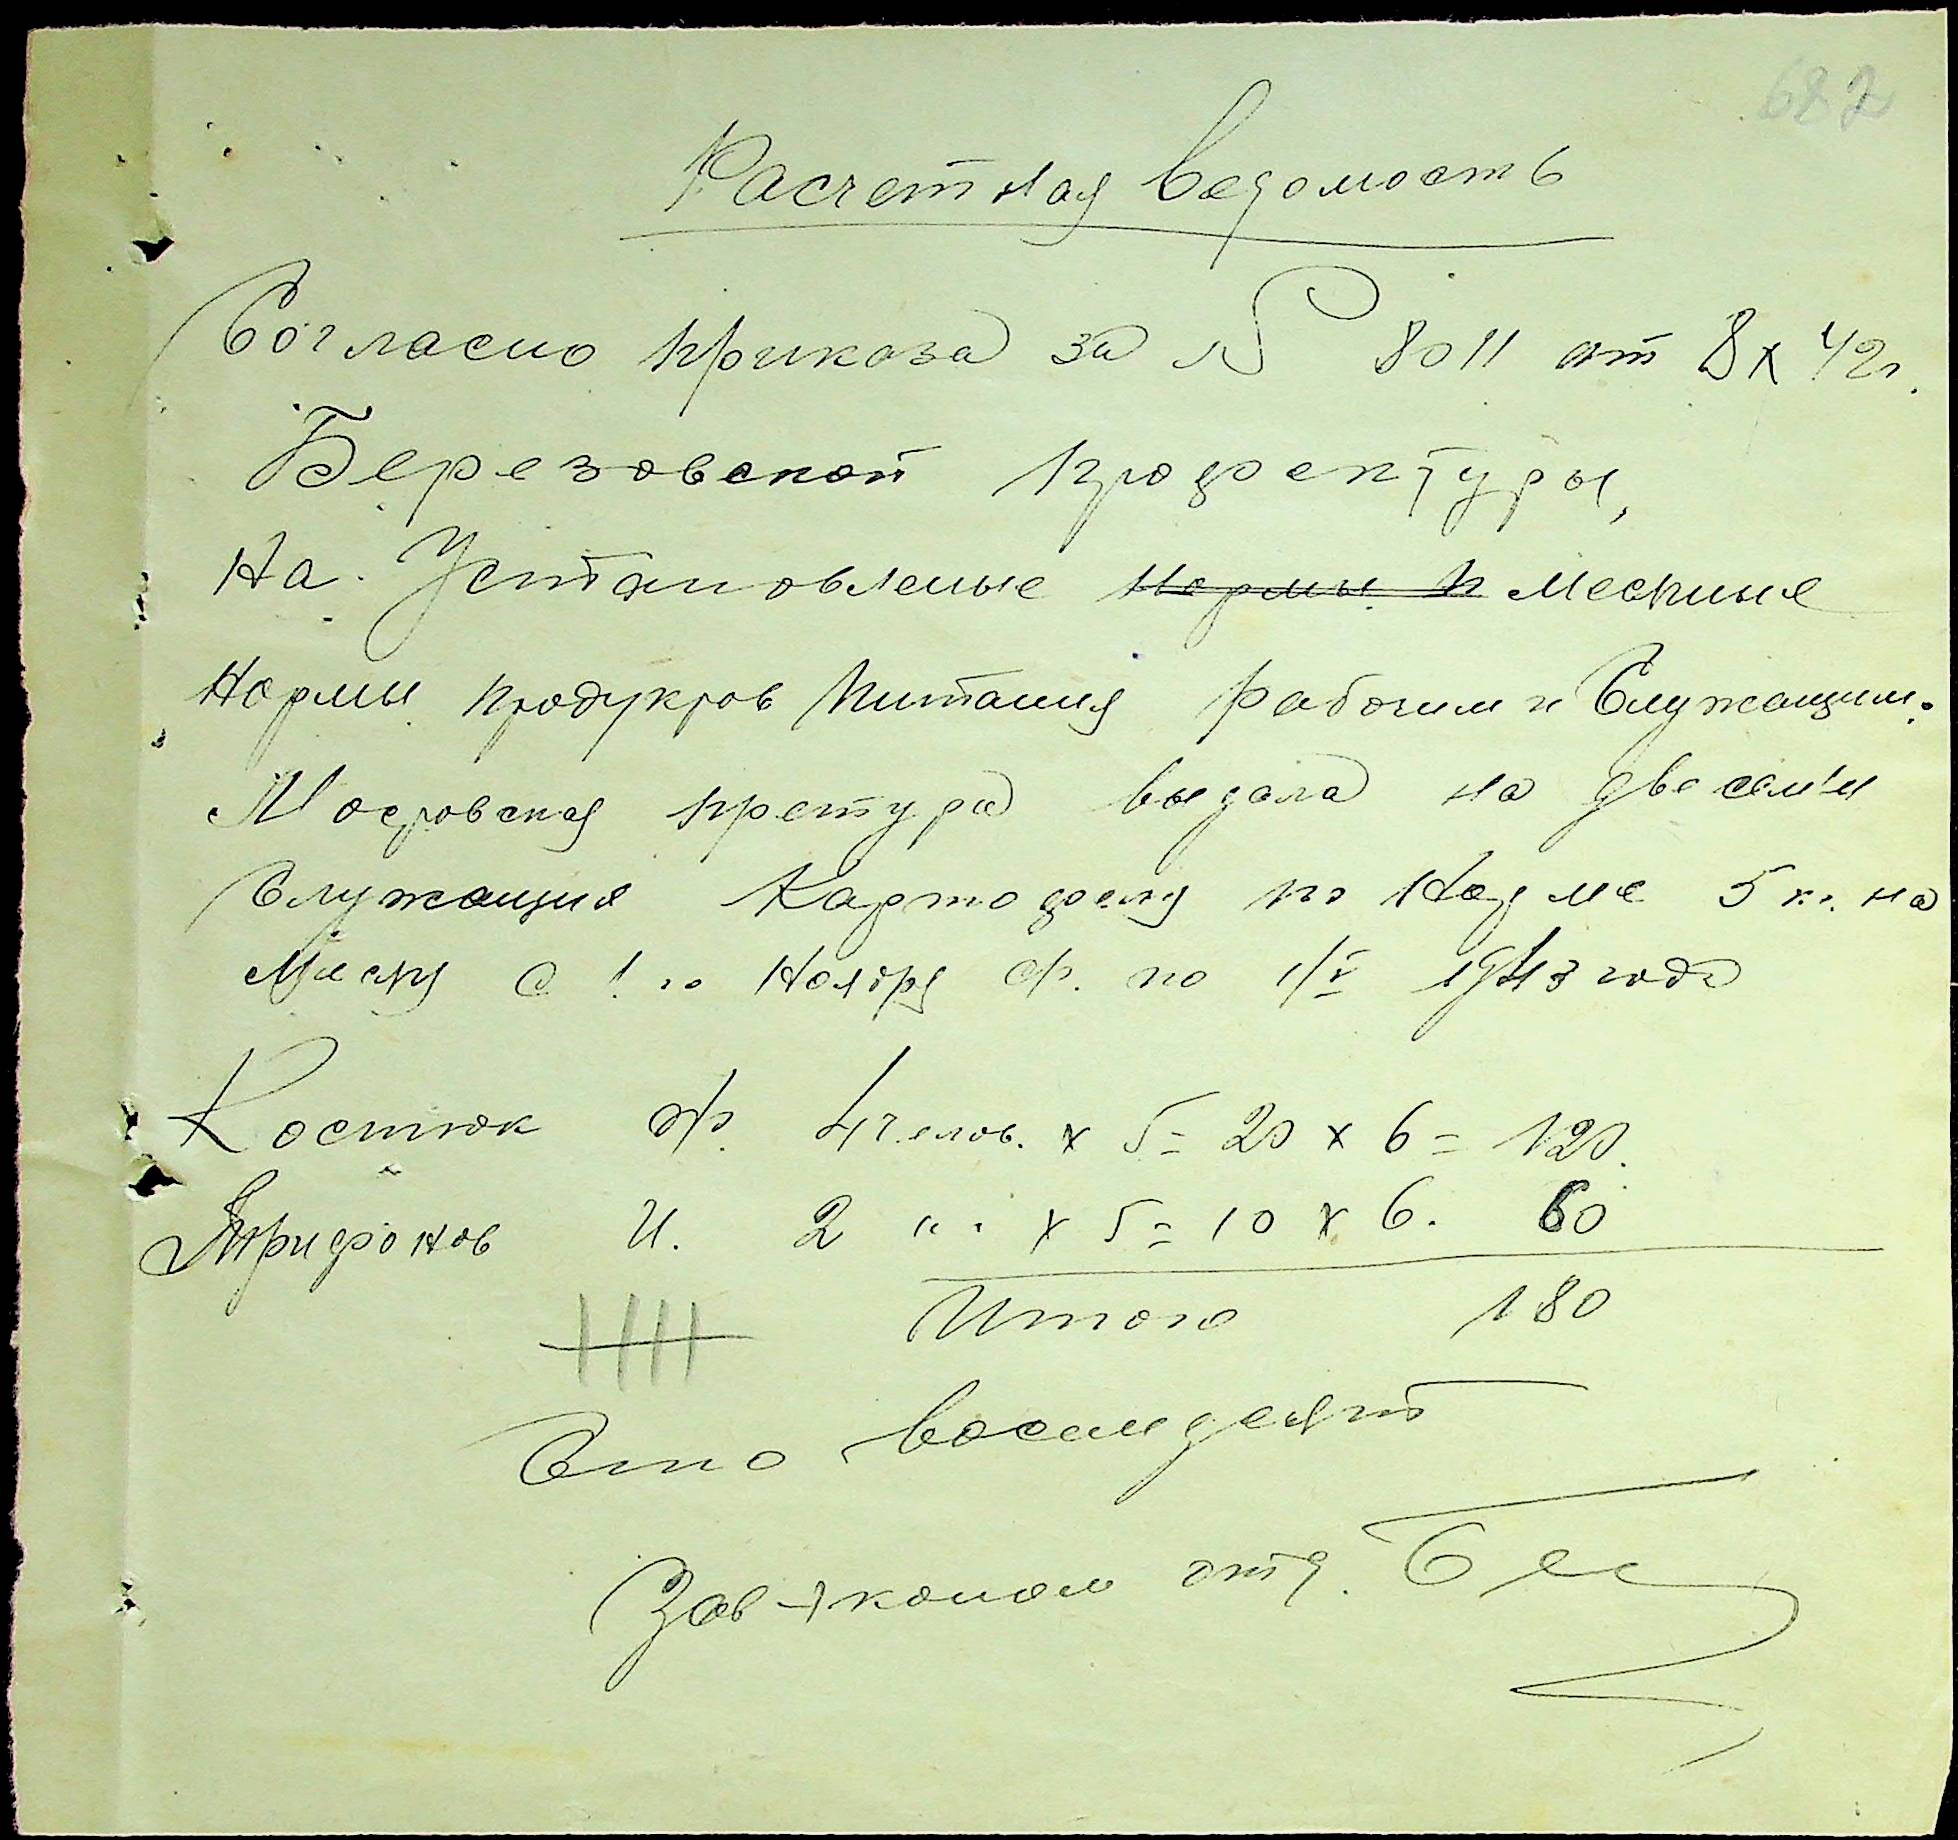 682
Расчетная Ведомость
Согласно приказа за № 8011 от 8 X 42 г.
Березовской профектуры,
На Установленые нормы и месячные
Нормы продуктов питания рабочим и Служащим.
Мостовская претура выдала на две семьи
Служащие Картофеля по Норме 5 кг. на
Месяц с 1 го Ноября по 1/V 1943 года
Костюк Ф. 4 челов. x 5 = 20 x 6 = 120.
Трифонов И. 2 " x 5 = 10 x 6. 60
Итого 180
Сто восемдесят
Зав эконом отд.